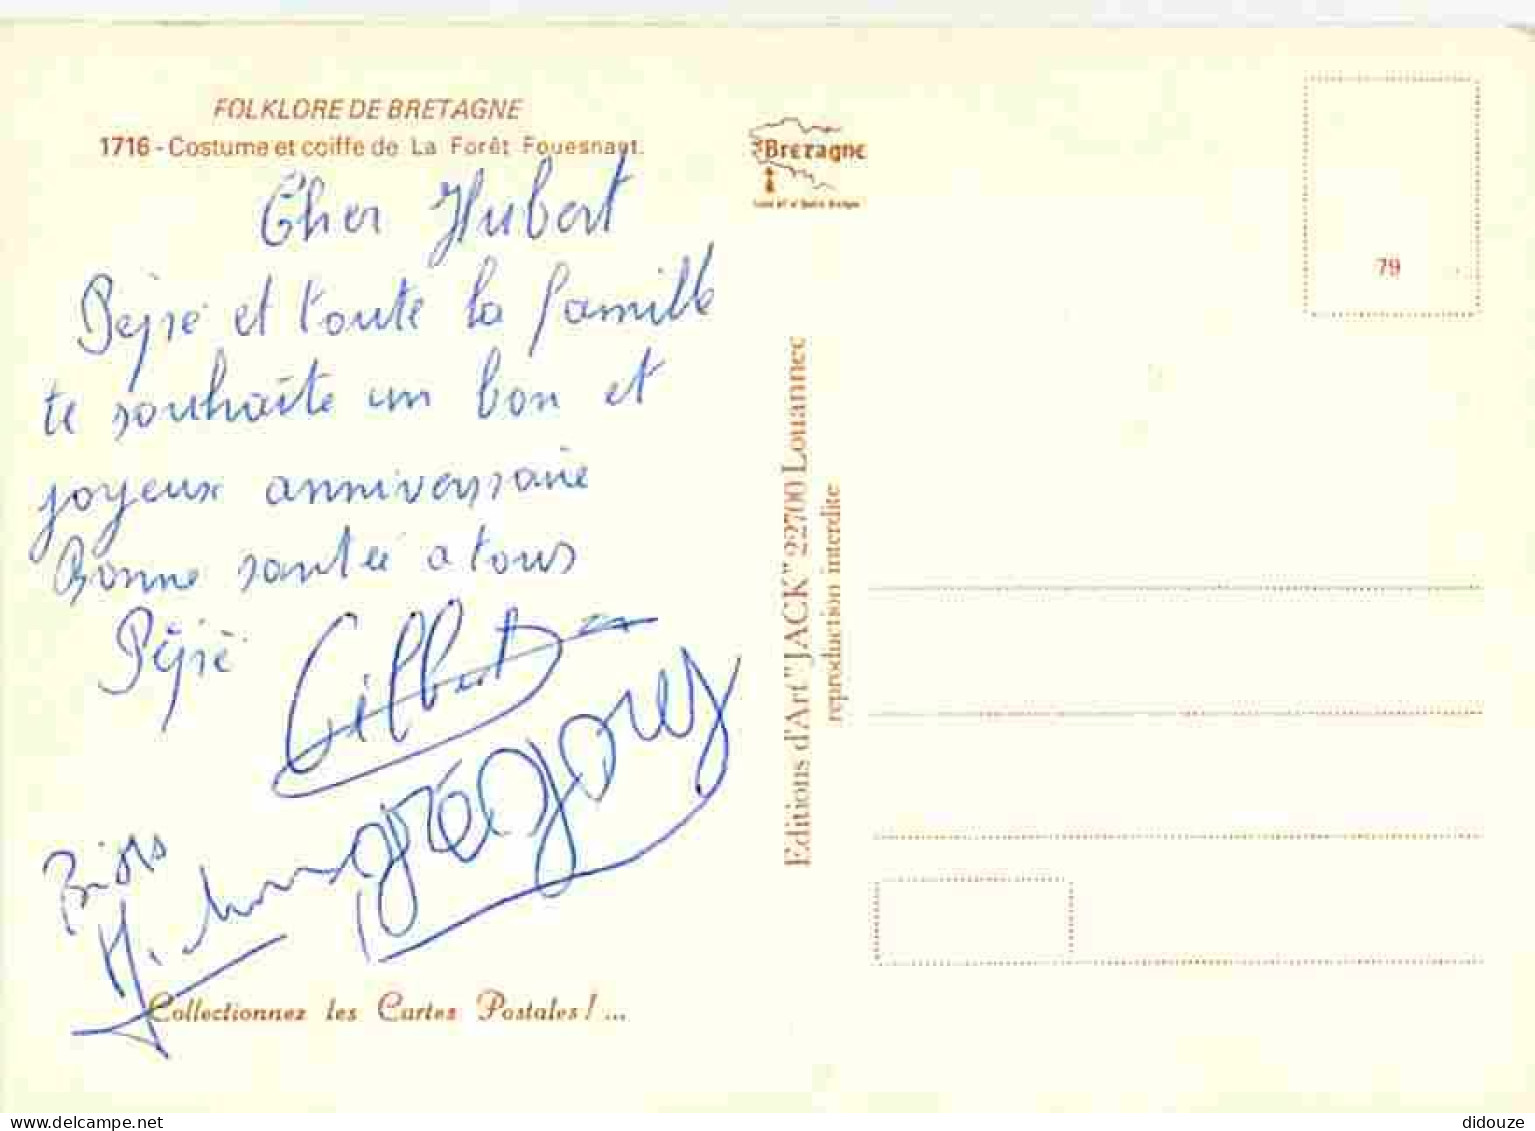 FOLKLORE DE BRETAGNE
1716 - Costume et coiffe de La Forêt Fouesnant.
Cher Hubert
Pépé et toute la famille
te souhaite un bon et
joyeux anniversaire
Bonne santée a tous
Pépé Gilbert
grégory
Collectionnez les Cartes Postales ! ...
Bretagne
79
Editions d'Art "JACK" 22700 Louannec
reproduction interdite
delcampe.net
didouze